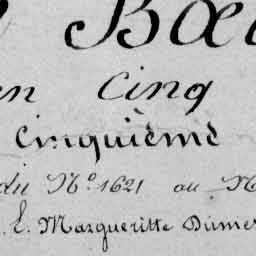 Bœ
en Cinq
Cinquième
du N° 1621 au N
E. Margueritte Dumer